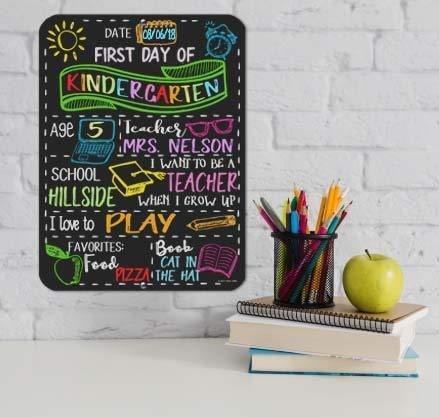 DATE 08/06/18
FIRST DAY OF
KINDERGARTEN
Age 5
Teacher
MRS. NELSON
SCHOOL
HILLSIDE
I WANT TO BE A
TEACHER
WHEN I GROW UP
I love to PLAY
FAVORITES:
Food
PIZZA
Book
CAT IN
THE HAT